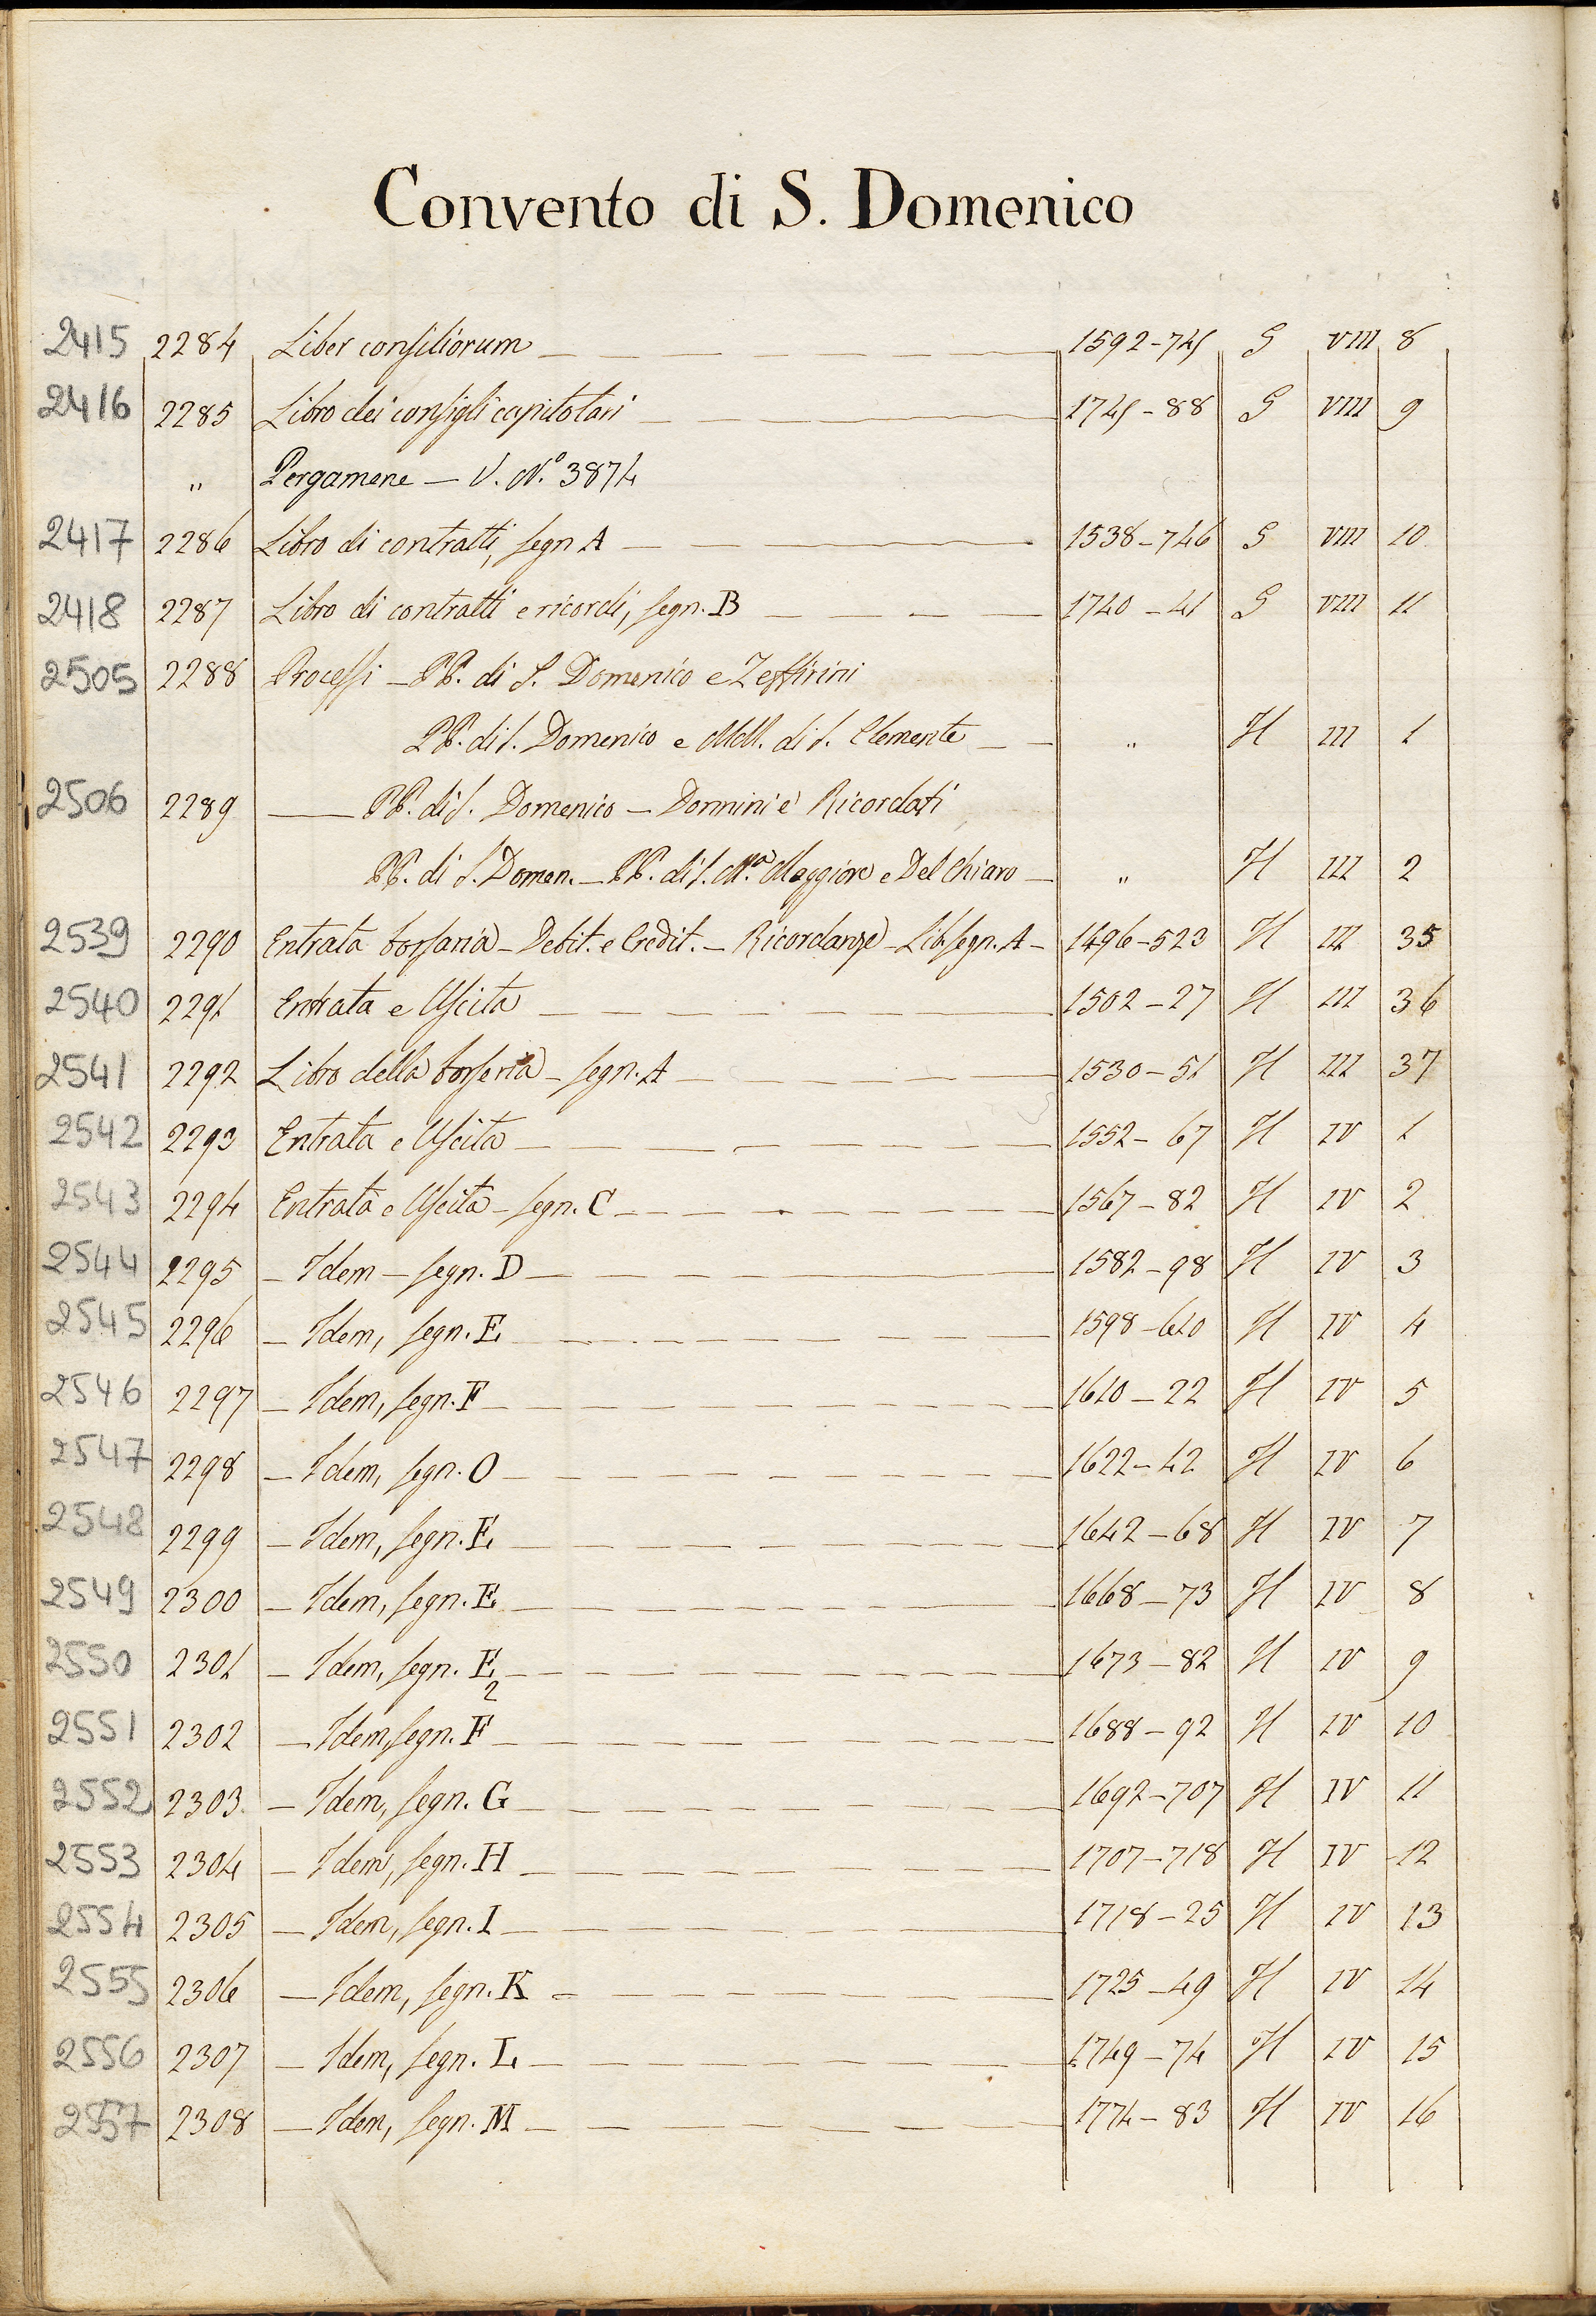 Convento di S. Domenico
2415 2284 Liber consiliorum 1592-741 G VIII 8
2416 2285 Libro dei consigli capitolari 1741-88 G VIII 9
„ Pergamene — V. N.º 3874
2417 2286 Libro di contratti, segn A 1538-746 G VIII 10
2418 2287 Libro di contratti e ricordi, segn. B 1740-41 G VIII 11
2505 2288 Processi — PP. di S. Domenico e Zeffirini
PP. di S. Domenico e MM. di S. Clemente „ H III 1
2506 2289 — PP. di S. Domenico — Donnini e Ricordati
PP. di S. Domen. — PP. di S. M.ª Maggiore e Del Chiaro — „ H III 2
2539 2290 Entrata borsaria — Debit. e Credit. — Ricordanze — Lib. segn. A — 1496-523 H III 35
2540 2291 Entrata e Uscita 1502-27 H III 36
2541 2292 Libro della borseria — segn. A 1530-51 H III 37
2542 2293 Entrata e Uscita 1552-67 H IV 1
2543 2294 Entrata e Uscita — segn. C 1567-82 H IV 2
2544 2295 — Idem — segn. D 1582-98 H IV 3
2545 2296 — Idem, segn. E 1598-610 H IV 4
2546 2297 — Idem, segn. F 1610-22 H IV 5
2547 2298 — Idem, segn. O 1622-42 H IV 6
2548 2299 — Idem, segn. E 1642-68 H IV 7
2549 2300 — Idem, segn. E 1668-73 H IV 8
2550 2301 — Idem, segn. E2 1673-82 H IV 9
2551 2302 — Idem, segn. F 1688-92 H IV 10
2552 2303 — Idem, segn. G 1692-707 H IV 11
2553 2304 — Idem, segn. H 1707-718 H IV 12
2554 2305 — Idem, segn. I 1718-25 H IV 13
2555 2306 — Idem, segn. K 1725-49 H IV 14
2556 2307 — Idem, segn. L 1749-74 H IV 15
2557 2308 — Idem, segn. M 1774-83 H IV 16